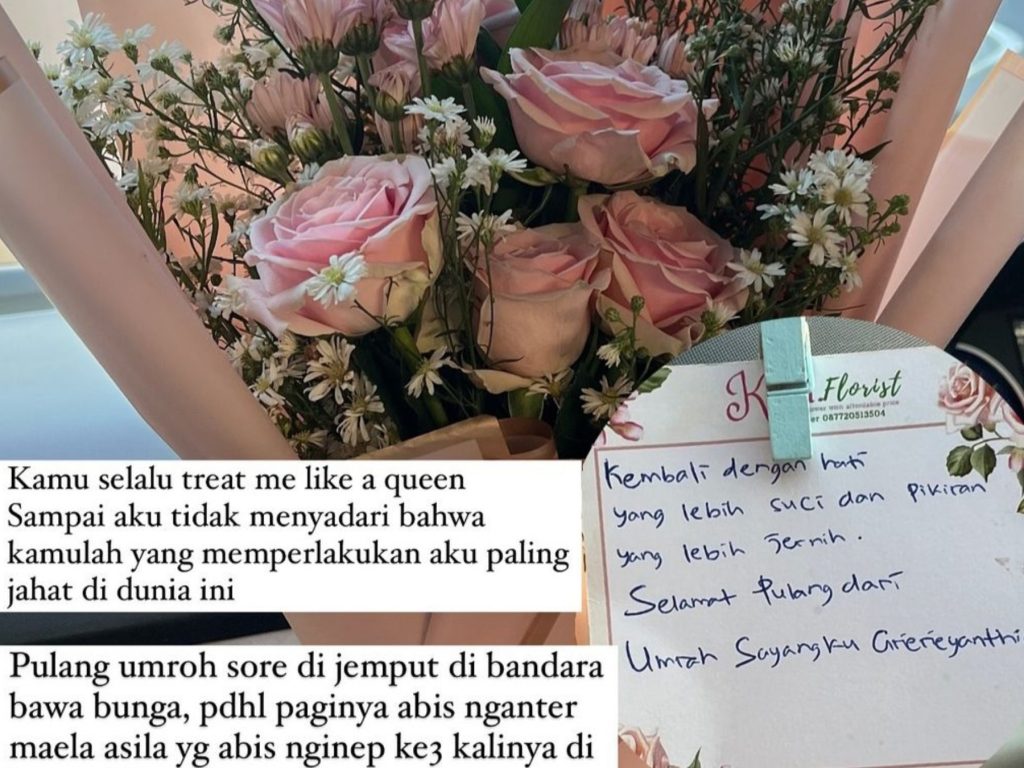 Florist
087720513504
Kembali dengan hati
yang lebih suci dan pikiran
yang lebih jernih.
Selamat Pulang dari
Umrah Sayangku
Kamu selalu treat me like a queen
Sampai aku tidak menyadari bahwa
kamulah yang memperlakukan aku paling
jahat di dunia ini
Pulang umroh sore di jemput di bandara
bawa bunga, pdhl paginya abis nganter
maela asila yg abis nginep ke3 kalinya di